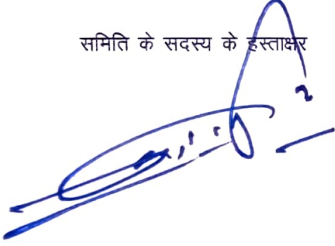 समिति के सदस्य के हस्ताक्षर